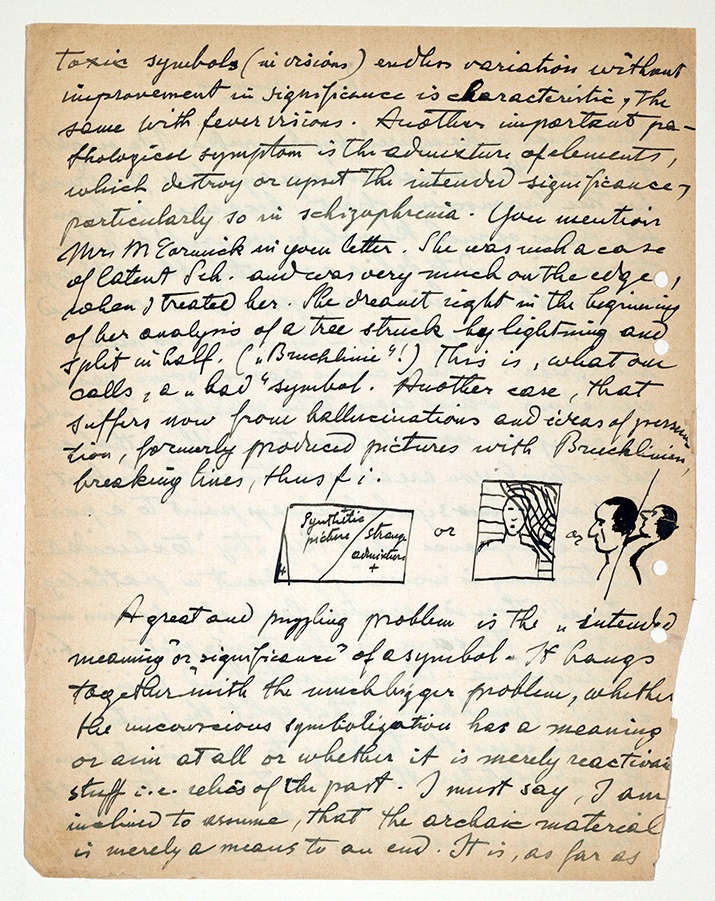 toxic symbols (in visions) endless variation without
improvement in significance is characteristic, the
same with fever visions. Another important pa-
thological symptom is the admixture of elements,
which destroy or upset the intended significance,
particularly so in schizophrenia. You mention
Mrs McCormick in your letter. She was such a case
of latent Sch. and was very much on the edge,
when I treated her. She dreamt right in the beginning
of her analysis of a tree struck by lightning and
split in half. („Bruchlinie"!) This is, what one
calls, a „bad" symbol. Another case, that
suffers now from hallucinations and ideas of persecu-
tion, formerly produced pictures with Bruchlinien,
breaking lines, thus f i
Synthetic
picture
Strange
admixture
+
+
or
or
A great and puzzling problem is the „intended
meaning" or „significance" of a symbol. It hangs
together with the much bigger problem, whether
the unconscious symbolization has a meaning
or aim at all or whether it is merely reactivated
stuff i.e. relics of the past. I must say, I am
inclined to assume, that the archaic material
is merely a means to an end. It is, as far as